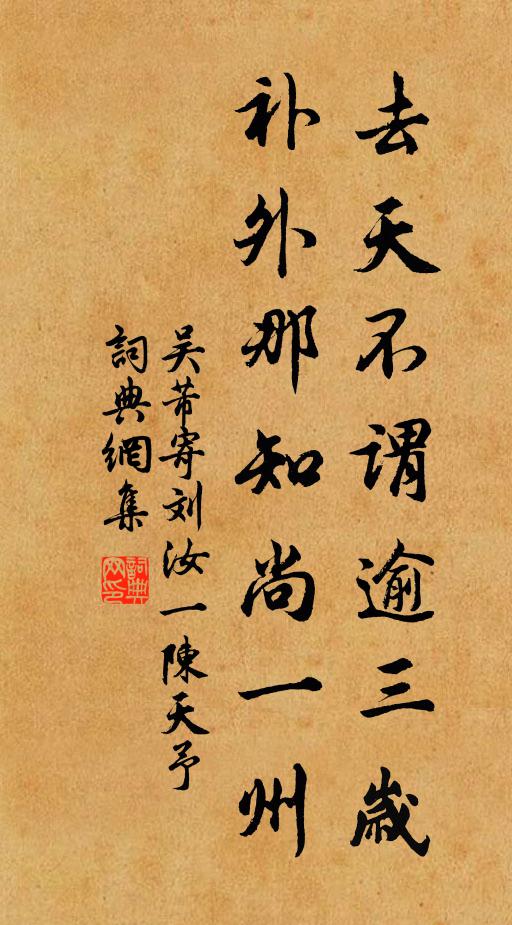 去天不谓逾三歲
补外那知尚一州
吴芾寄刘汝一陳天予
詞典網集
詞典网印